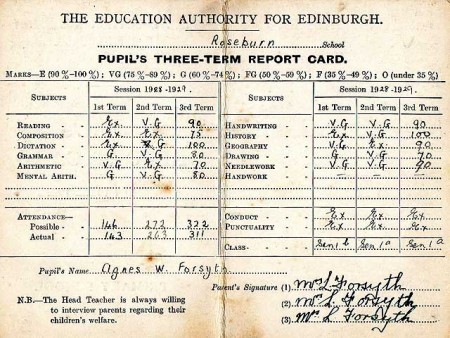 THE EDUCATION AUTHORITY FOR EDINBURGH.
Roseburn School
PUPIL'S THREE-TERM REPORT CARD.
MARKS—E (90 %-100 %); VG (75 %-89 %); G (60 %-74 %); FG (50 %-59 %); F (35 %-49 %); O (under 35 %)
SUBJECTS Session 1928-1929. SUBJECTS Session 1928-1929.
1st Term 2nd Term 3rd Term 1st Term 2nd Term 3rd Term
READING Ex V.G 90 HANDWRITING V.G V.G 90
COMPOSITION Ex Ex 75 HISTORY Ex V.G 100
DICTATION Ex G 100 GEOGRAPHY V.G Ex 90
GRAMMAR G V.G 80 DRAWING G V.G 70
ARITHMETIC V.G Ex 70 NEEDLEWORK V.G V.G 90
MENTAL ARITH. G V.G 80 HANDWORK —
ATTENDANCE— CONDUCT Ex Ex Ex
Possible 146 272 322 PUNCTUALITY Ex Ex Ex
Actual 143 263 311
CLASS Sen 1 b Sen 1 a Sen 1 a
Pupil's Name Agnes W. Forsyth
Parent's Signature (1) Mrs L Forsyth
(2) Mrs L Forsyth
(3) Mrs L Forsyth
N.B.—The Head Teacher is always willing
to interview parents regarding their
children's welfare.